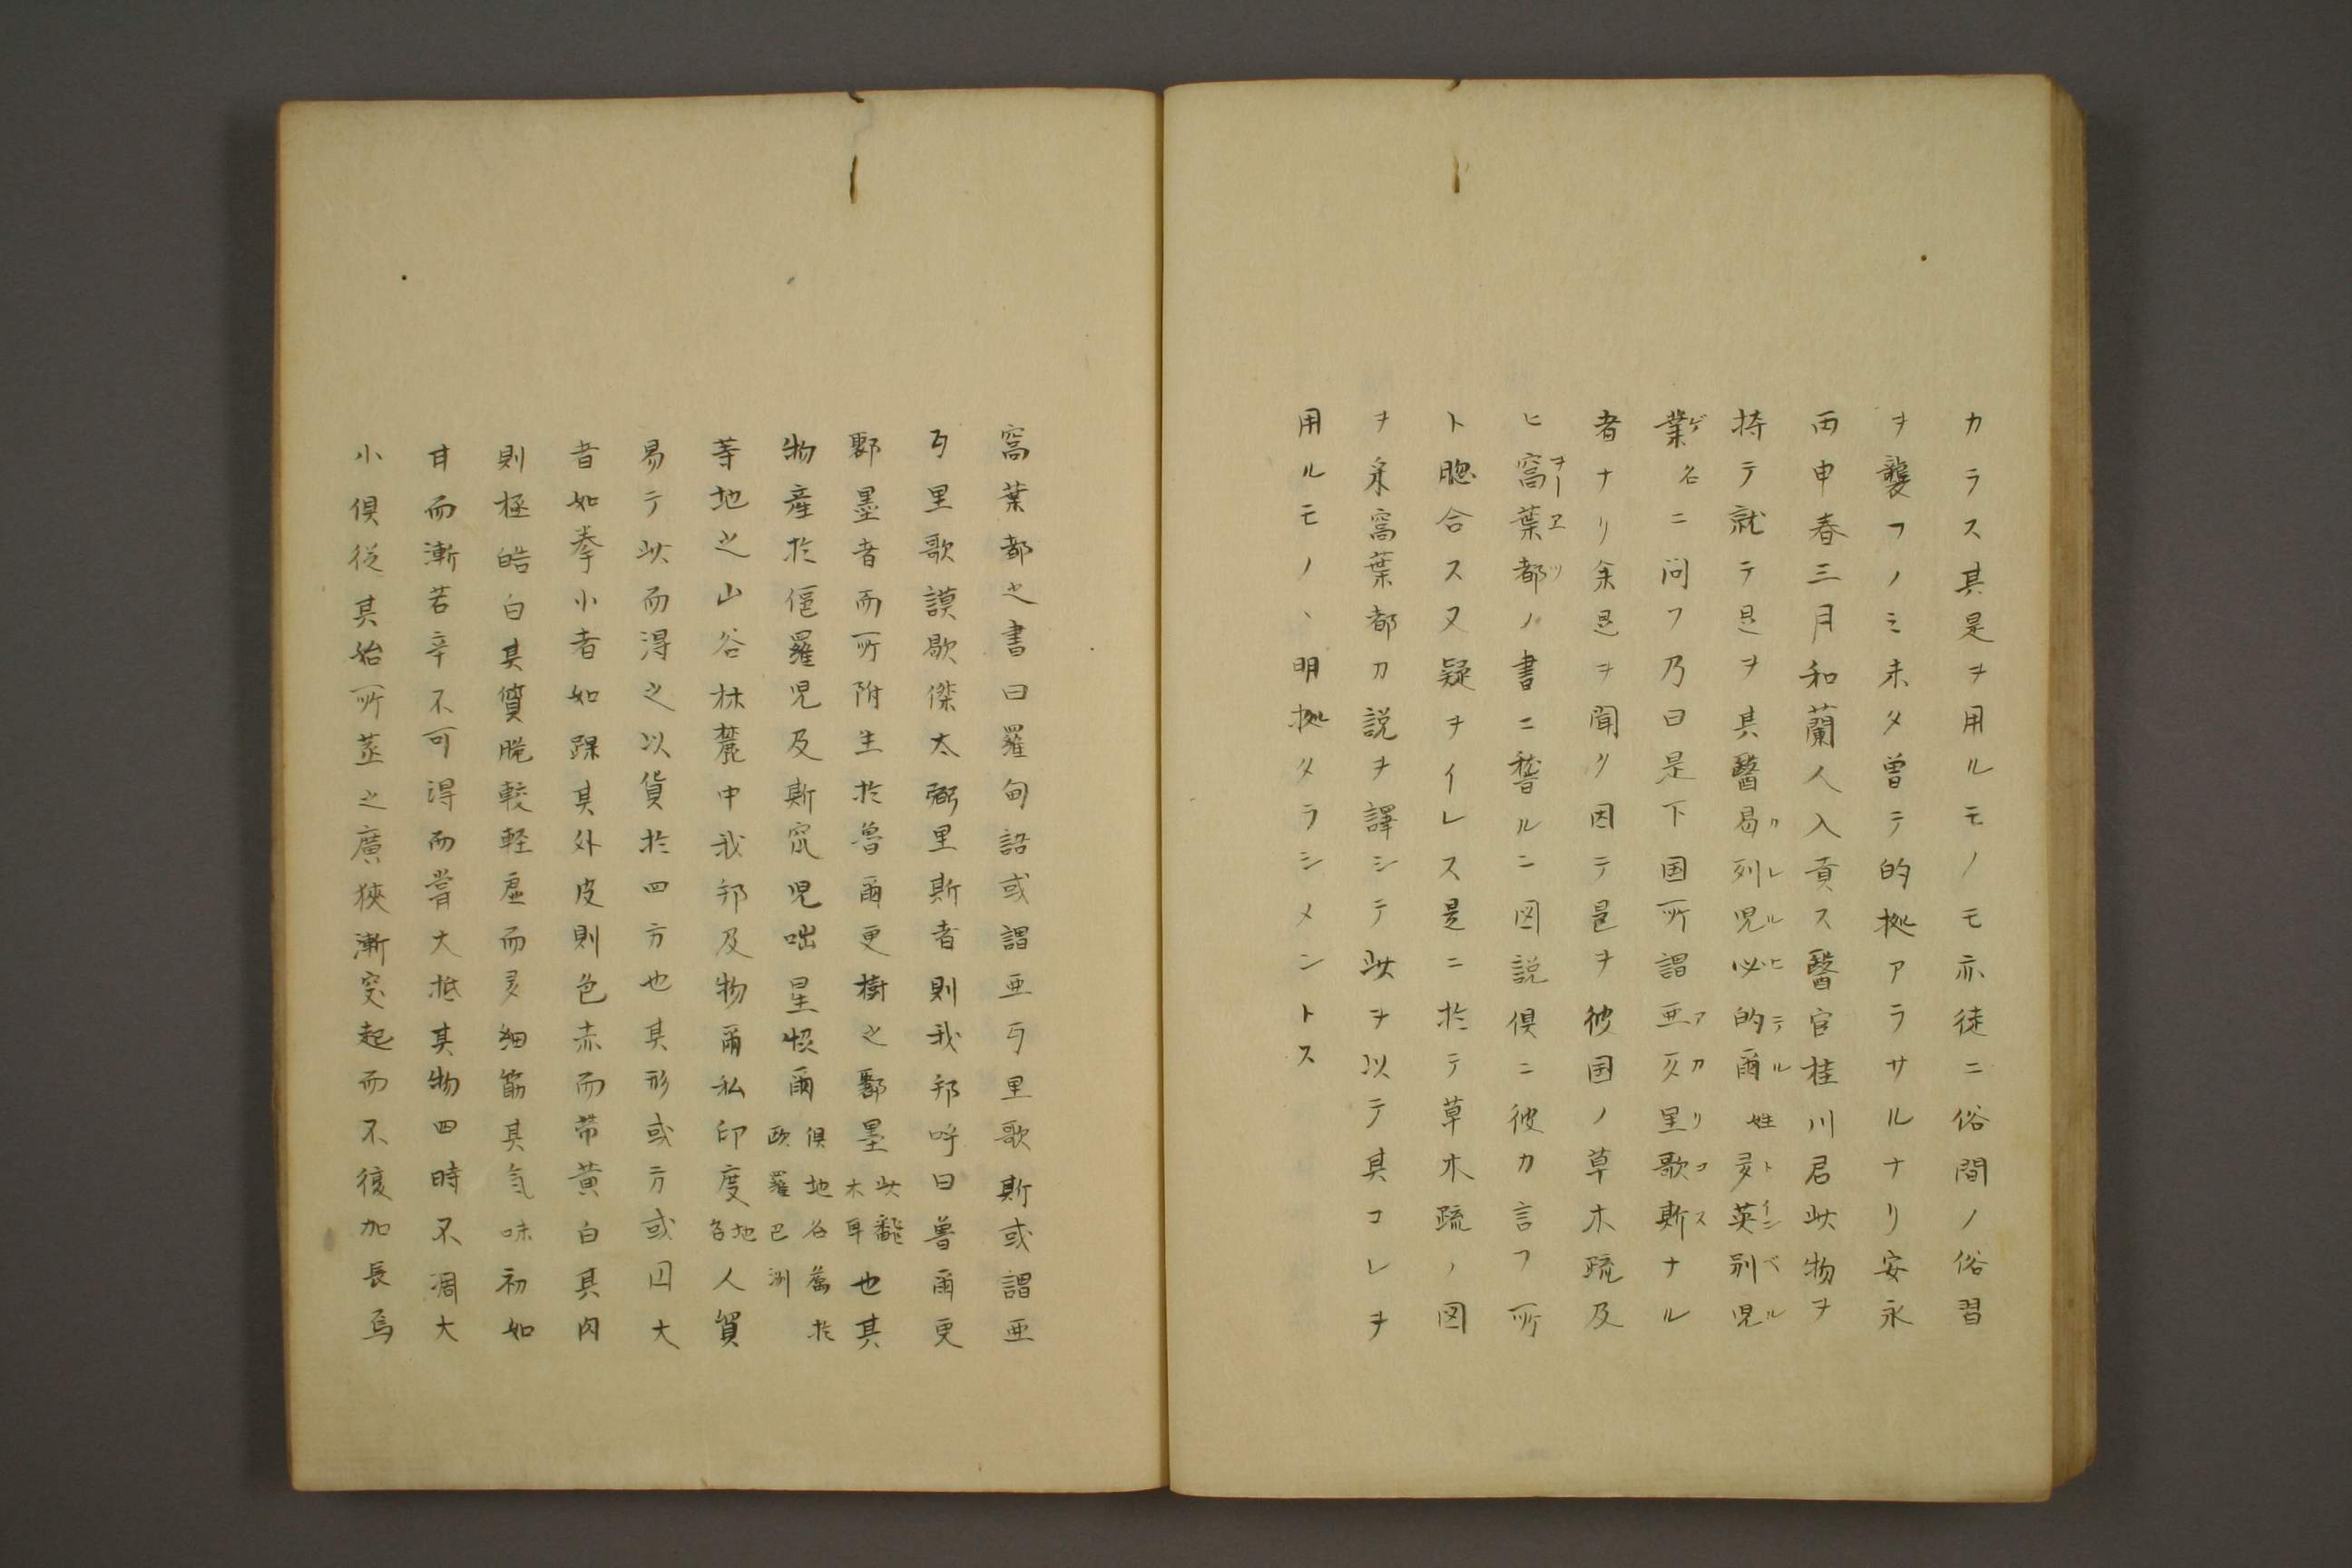 カラス其是ヲ用ルモノモ亦徒ニ俗間ノ俗習
ヲ襲フノミ未タ曽テ的拠アラサルナリ安永
丙申春三月和蘭人入貢ス醫官桂川君此物ヲ
持テ就テ是ヲ其醫曷列児必的爾姓多英別児
業名ニ問フ乃曰是下国所謂亜歹里歌斯ナル
者ナリ余是ヲ聞ク因テ是ヲ彼国ノ草木疏及
ヒ窩葉都ノ書ニ稽ルニ図説倶ニ彼カ言フ所
ト脗合ス又疑ヲイレス是ニ於テ草木疏ノ図
ヲ采窩葉都カ説ヲ譯シテ此ヲ以テ其コレヲ
用ルモノヽ明拠タラシメントス
窩葉都之書曰羅甸語或謂亜丂里歌斯或謂亜
丂里歌謨歇傑太弼里斯者則我邦呼曰魯爾更
鄹墨者而所附生於魯爾更樹之鄹墨此翻木耳也其
物産於偓羅児及斯窊児咄星悢爾倶地名旧於欧羅巴洲
等地之山谷林麓中我邦及物爾私印度地名人貿
易テ此而得之以貨於四方也其形或方或囚大
者如拳小者如踝其外皮則色赤而帯黄白其肉
則極皓白其質脆較軽虚而多細筋其気味初如
甘而漸若辛不可得而嘗大抵其物四時不凋大
小倶従其始所蒞之廣狹漸突起而不復加長焉